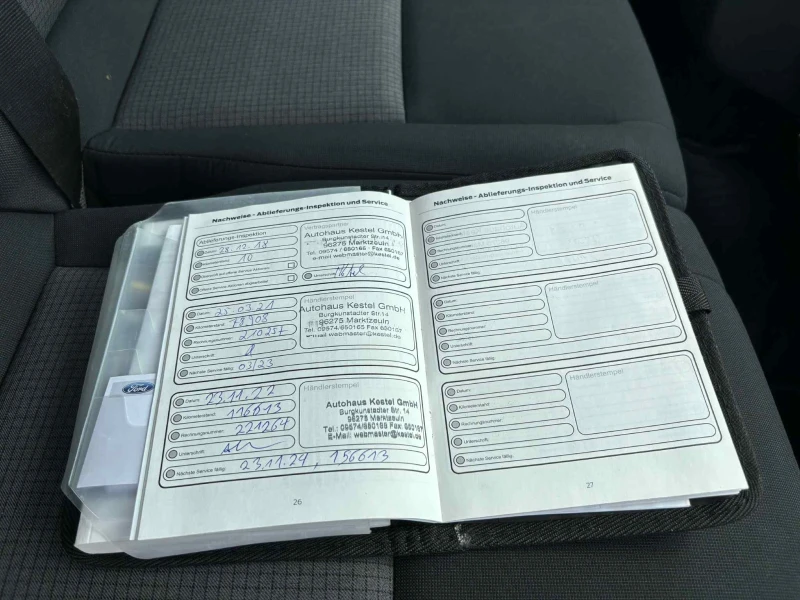 Nachweise - Ablieferungs-Inspektion und Service
Ablieferungs-Inspektion
28.12.18
10
Autohaus Kestel GmbH
Burgkunstadter Str.14
96275 Marktzeuln
Tel. 09574 / 650165 - Fax 650167
e-mail webmaster@kestel.de
Datum: 25.03.21
Kilometerstand: 78908
Rechnungsnummer: 210257
Unterschrift:
Nächste Service fällig: 03/23
Händlerstempel
Autohaus Kestel GmbH
Burgkunstadter Str.14
96275 Marktzeuln
Tel. 09574/650165 Fax 650167
e-mail webmaster@kestel.de
Datum: 23.11.22
Kilometerstand: 116613
Rechnungsnummer: 221264
Unterschrift:
Nächste Service fällig: 23.11.24, 156613
Händlerstempel
Autohaus Kestel GmbH
Burgkunstadter Str. 14
96275 Marktzeuln
Tel.: 09574/650165 Fax: 650167
E-Mail: webmaster@kestel.de
26
Ford
Nachweise - Ablieferungs-Inspektion und Service
Datum:
Kilometerstand:
Rechnungsnummer:
Unterschrift:
Nächste Service fällig:
Händlerstempel
Datum:
Kilometerstand:
Rechnungsnummer:
Unterschrift:
Nächste Service fällig:
Händlerstempel
Datum:
Kilometerstand:
Rechnungsnummer:
Unterschrift:
Nächste Service fällig:
Händlerstempel
27